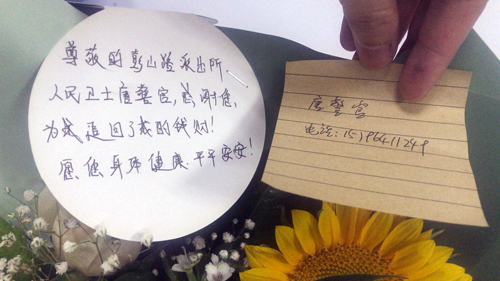 尊敬的彭山路派出所
人民卫士唐警官,感谢您,
为我追回了我的钱财!
愿您身体健康.平平安安!
唐警官
电话: